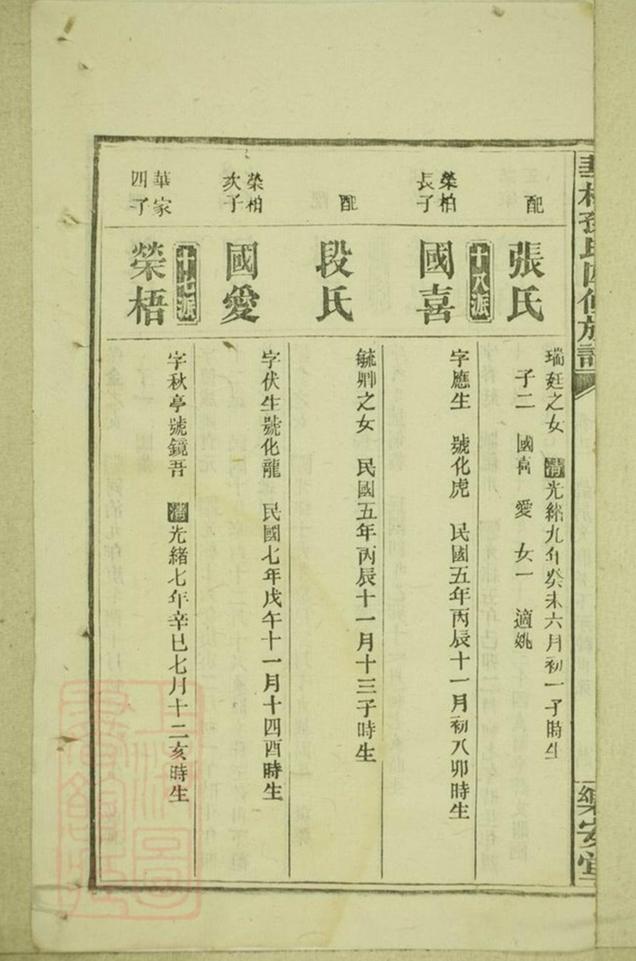 孫氏四修族譜
樂安堂
配
張氏
瑞廷之女 清光緒九年癸未六月初一子時生
子二 國喜 愛 女一 適姚
十八派
榮柏
長子
國喜
字應生 號化虎 民國五年丙辰十一月初八卯時生
配
段氏
毓卿之女 民國五年丙辰十一月十三子時生
榮柏
次子
國愛
字伏生號化龍 民國七年戊午十一月十四酉時生
十七派
華家
四子
榮梧
字秋亭號鏡吾 清光緒七年辛巳七月十二亥時生
上海圖
書館藏